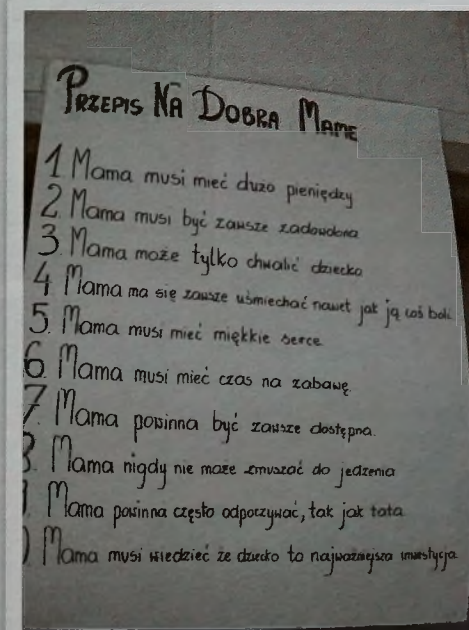 PRZEPIS NA DOBRA MAME
1 Mama musi mieć dużo pieniędzy
2. Mama musi być zawsze zadowolona
3. Mama może tylko chwalić dziecko
4 Mama ma się zawsze uśmiechać nawet jak ją coś boli.
5. Mama musi mieć miękkie serce
6. Mama musi mieć czas na zabawę
7. Mama powinna być zawsze dostępna.
8. Mama nigdy nie może zmuszać do jedzenia
Mama powinna często odpoczywać, tak jak tata
Mama musi wiedzieć że dziecko to najważniejsza inwestycja